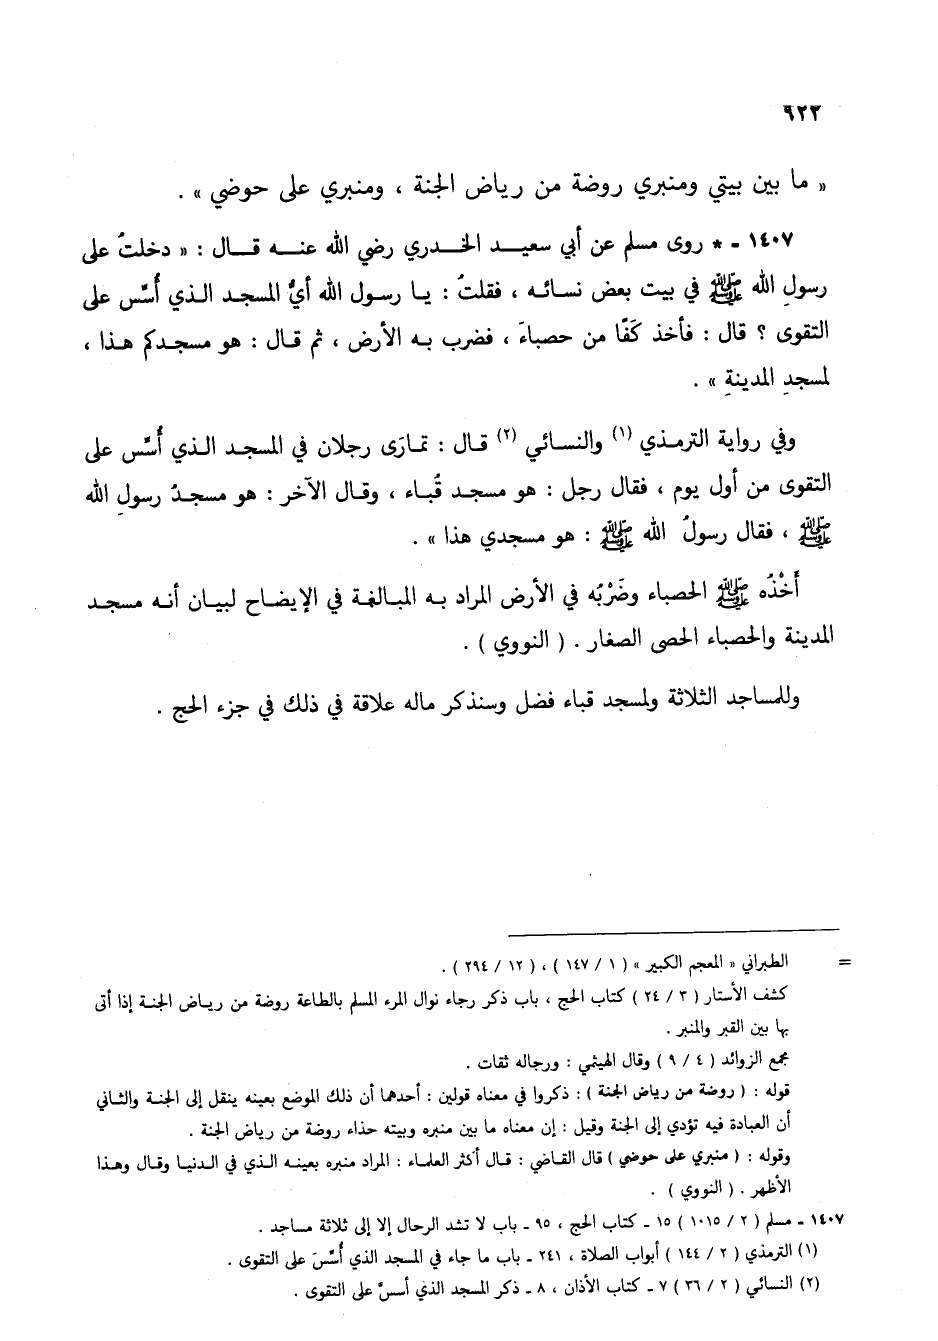 ٩٢٢
« ما بين بيتي ومنبري روضة من رياض الجنة ، ومنبري على حوضي » .
١٤٠٧ - * روى مسلم عن أبي سعيد الخدري رضي الله عنه قال : « دخلتُ على
رسولِ الله ﷺ في بيت بعض نسائه ، فقلتُ : يا رسول الله أيُّ المسجد الذي أُسِّس على
التقوى ؟ قال : فأخذ كَفًّا من حصباءَ ، فضرب به الأرض ، ثم قال : هو مسجدكم هذا ،
لمسجدِ المدينةِ » .
وفي رواية الترمذي (١) والنسائي (٢) قال : تمارَى رجلان في المسجد الذي أُسِّس على
التقوى من أول يوم ، فقال رجل : هو مسجد قُباء ، وقال الآخر : هو مسجدُ رسولِ الله
ﷺ ، فقال رسولُ الله ﷺ : هو مسجدي هذا » .
أَخْذُه ﷺ الحصباء وضَرْبُه في الأرض المراد به المبالغة في الإيضاح لبيان أنه مسجد
المدينة والحصباء الحصى الصغار . ( النووي ) .
وللمساجد الثلاثة ولمسجد قباء فضل وسنذكر ماله علاقة في ذلك في جزء الحج .
= الطبراني « المعجم الكبير » ( ١ / ١٤٧ ) ، ( ١٢ / ٢٩٤ ) .
كشف الأستار ( ٢ / ٢٤ ) كتاب الحج ، باب ذكر رجاء نوال المرء المسلم بالطاعة روضة من رياض الجنة إذا أتى
بها بين القبر والمنبر .
مجمع الزوائد ( ٤ / ٩ ) وقال الهيثمي : ورجاله ثقات .
قوله : ( روضة من رياض الجنة ) : ذكروا في معناه قولين : أحدهما أن ذلك الموضع بعينه ينقل إلى الجنة والثاني
أن العبادة فيه تؤدي إلى الجنة وقيل : إن معناه ما بين منبره وبيته حذاء روضة من رياض الجنة .
وقوله : ( منبري على حوضي ) قال القاضي : قال أكثر العلماء : المراد منبره بعينه الذي في الدنيا وقال وهذا
الأظهر . ( النووي ) .
١٤٠٧ - مسلم ( ٢ / ١٠١٥ ) ١٥ - كتاب الحج ، ٩٥ - باب لا تشد الرحال إلا إلى ثلاثة مساجد .
(١) الترمذي ( ٢ / ١٤٤ ) أبواب الصلاة ، ٢٤١ - باب ما جاء في المسجد الذي أُسِّسَ على التقوى .
(٢) النسائي ( ٢ / ٣٦ ) ٧ - كتاب الأذان ، ٨ - ذكر المسجد الذي أسسَّ على التقوى .